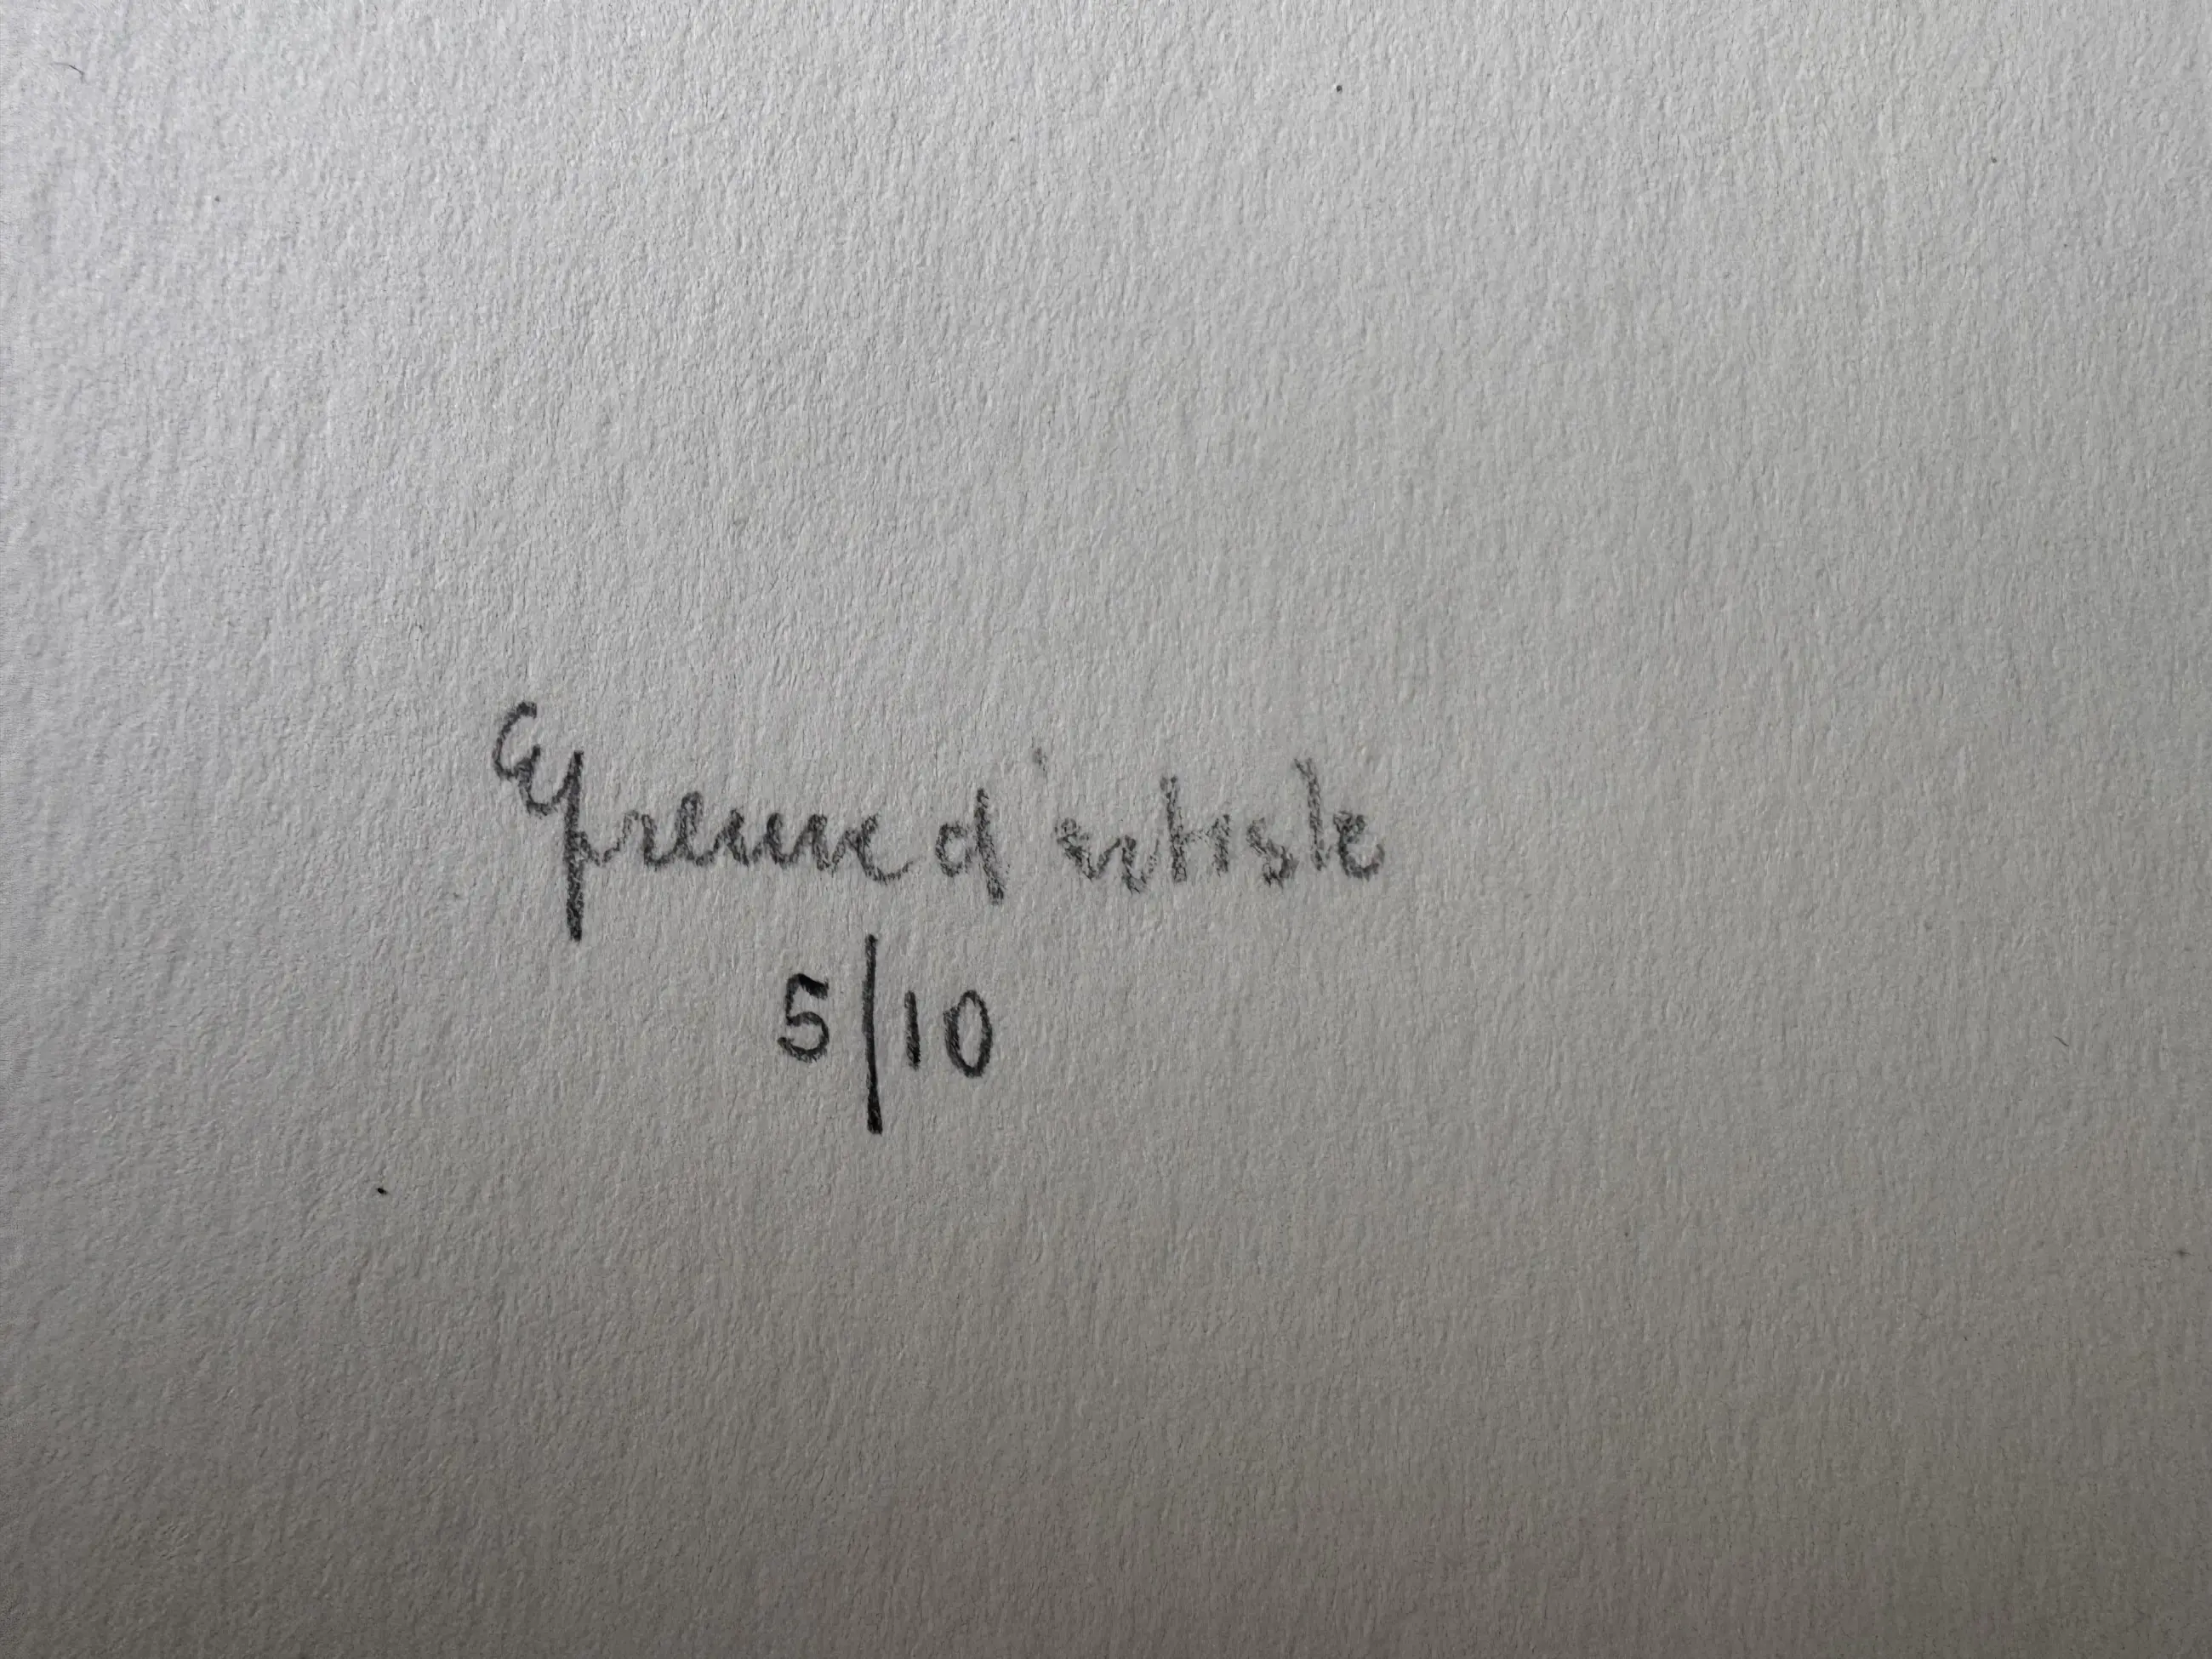 Epreuve d'artiste
5/10